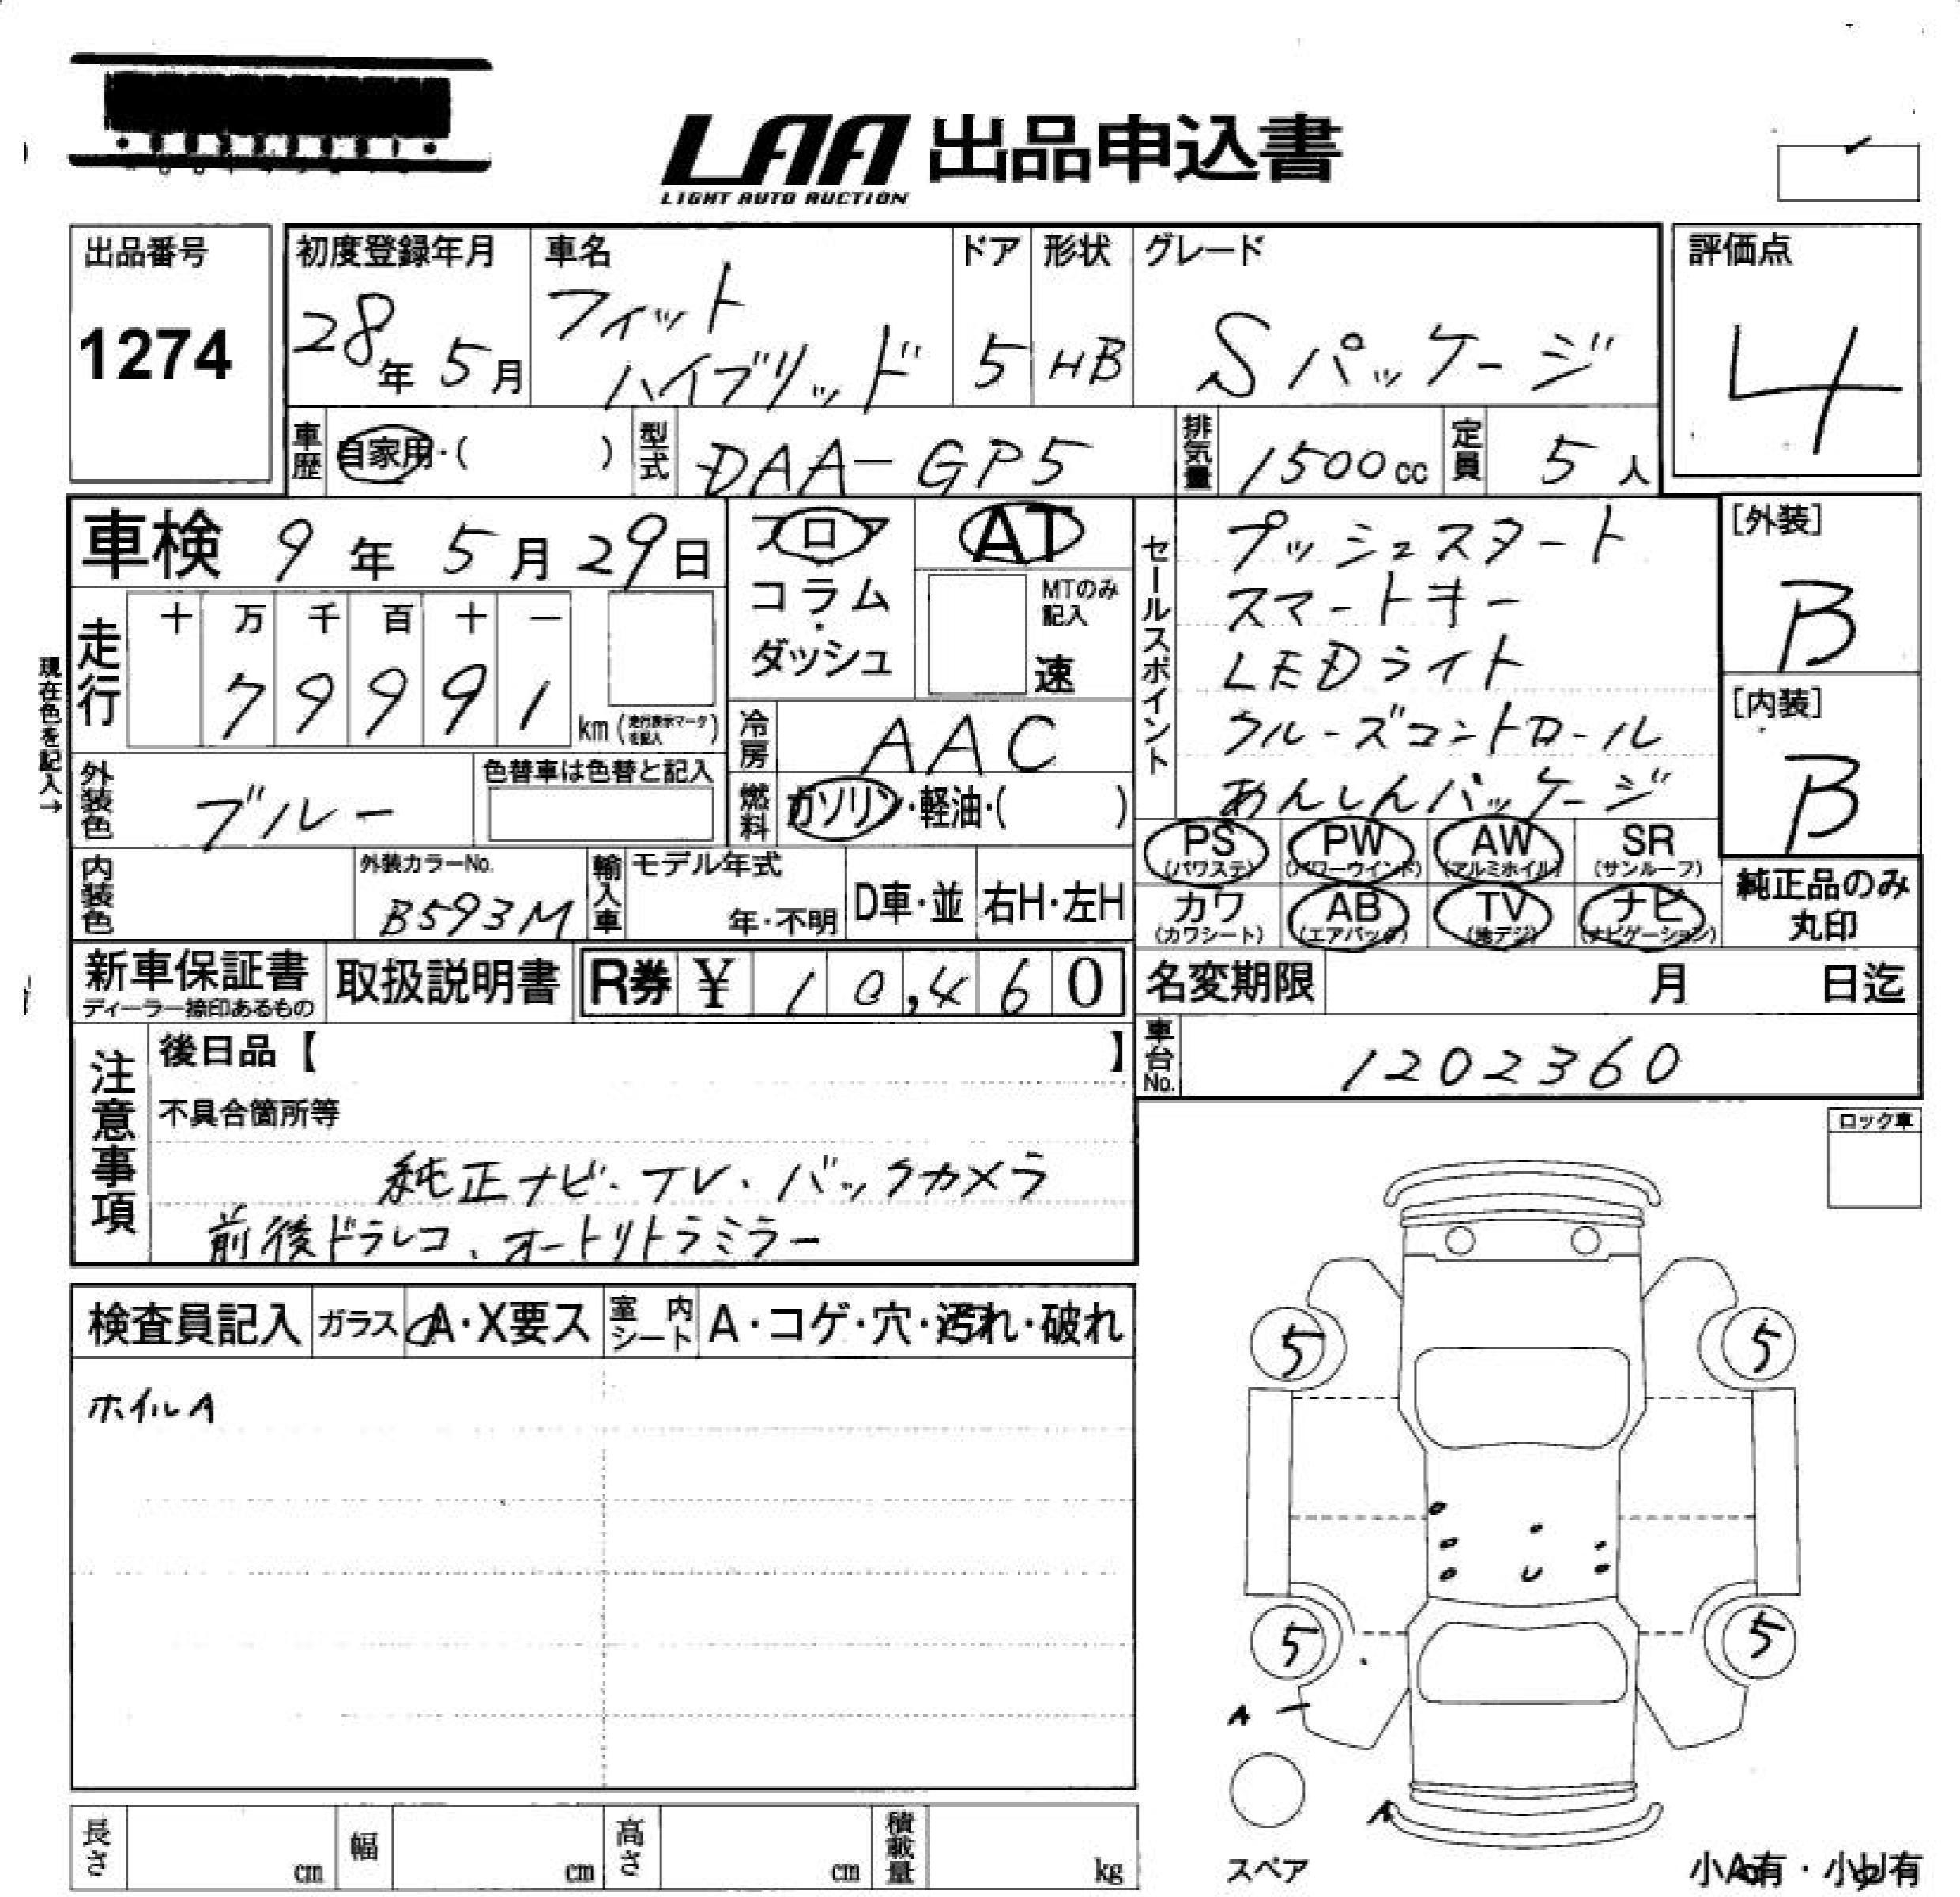 LAA 出品申込書
LIGHT AUTO AUCTION
出品番号
1274
初度登録年月
28年 5月
車名
フィット
ハイブリッド
ドア
5
形状
HB
グレード
Sパッケージ
評価点
4
車歴
自家用・( )
型式
DAA-GP5
排気量
1500cc
定員
5人
車検 9年 5月 29日
フロア
コラム
・
ダッシュ
AT
MTのみ
記入
速
セールスポイント
プッシュスタート
スマートキー
LEDライト
クルーズコントロール
あんしんパッケージ
[外装]
B
[内装]
B
現在色を記入→
走行
十 万 千 百 十 一
7 9 9 9 1
km (走行表示マークを記入)
冷房
AAC
外装色
ブルー
色替車は色替と記入
燃料
ガソリン・軽油・( )
PS
(パワステ)
PW
(パワーウインド)
AW
(アルミホイル)
SR
(サンルーフ)
カワ
(カワシート)
AB
(エアバック)
TV
(地デジ)
ナビ
(ナビゲーション)
純正品のみ
丸印
内装色
外装カラーNo.
B593M
輸入車
モデル年式
年・不明
D車・並
右H・左H
新車保証書
ディーラー捺印あるもの
取扱説明書
R券 ¥ 10,460
名変期限 月 日迄
車台No.
1202360
注意事項
後日品【 】
不具合箇所等
純正ナビ・TV・バックカメラ
前後ドラレコ、オートリトラミラー
ロック車
検査員記入
ガラス
A・X要ス
室内シート
A・コゲ・穴・汚れ・破れ
ホイルA
5
5
5
5
U
A
A
スペア
小A有・小U有
長さ cm
幅 cm
高さ cm
積載量 kg